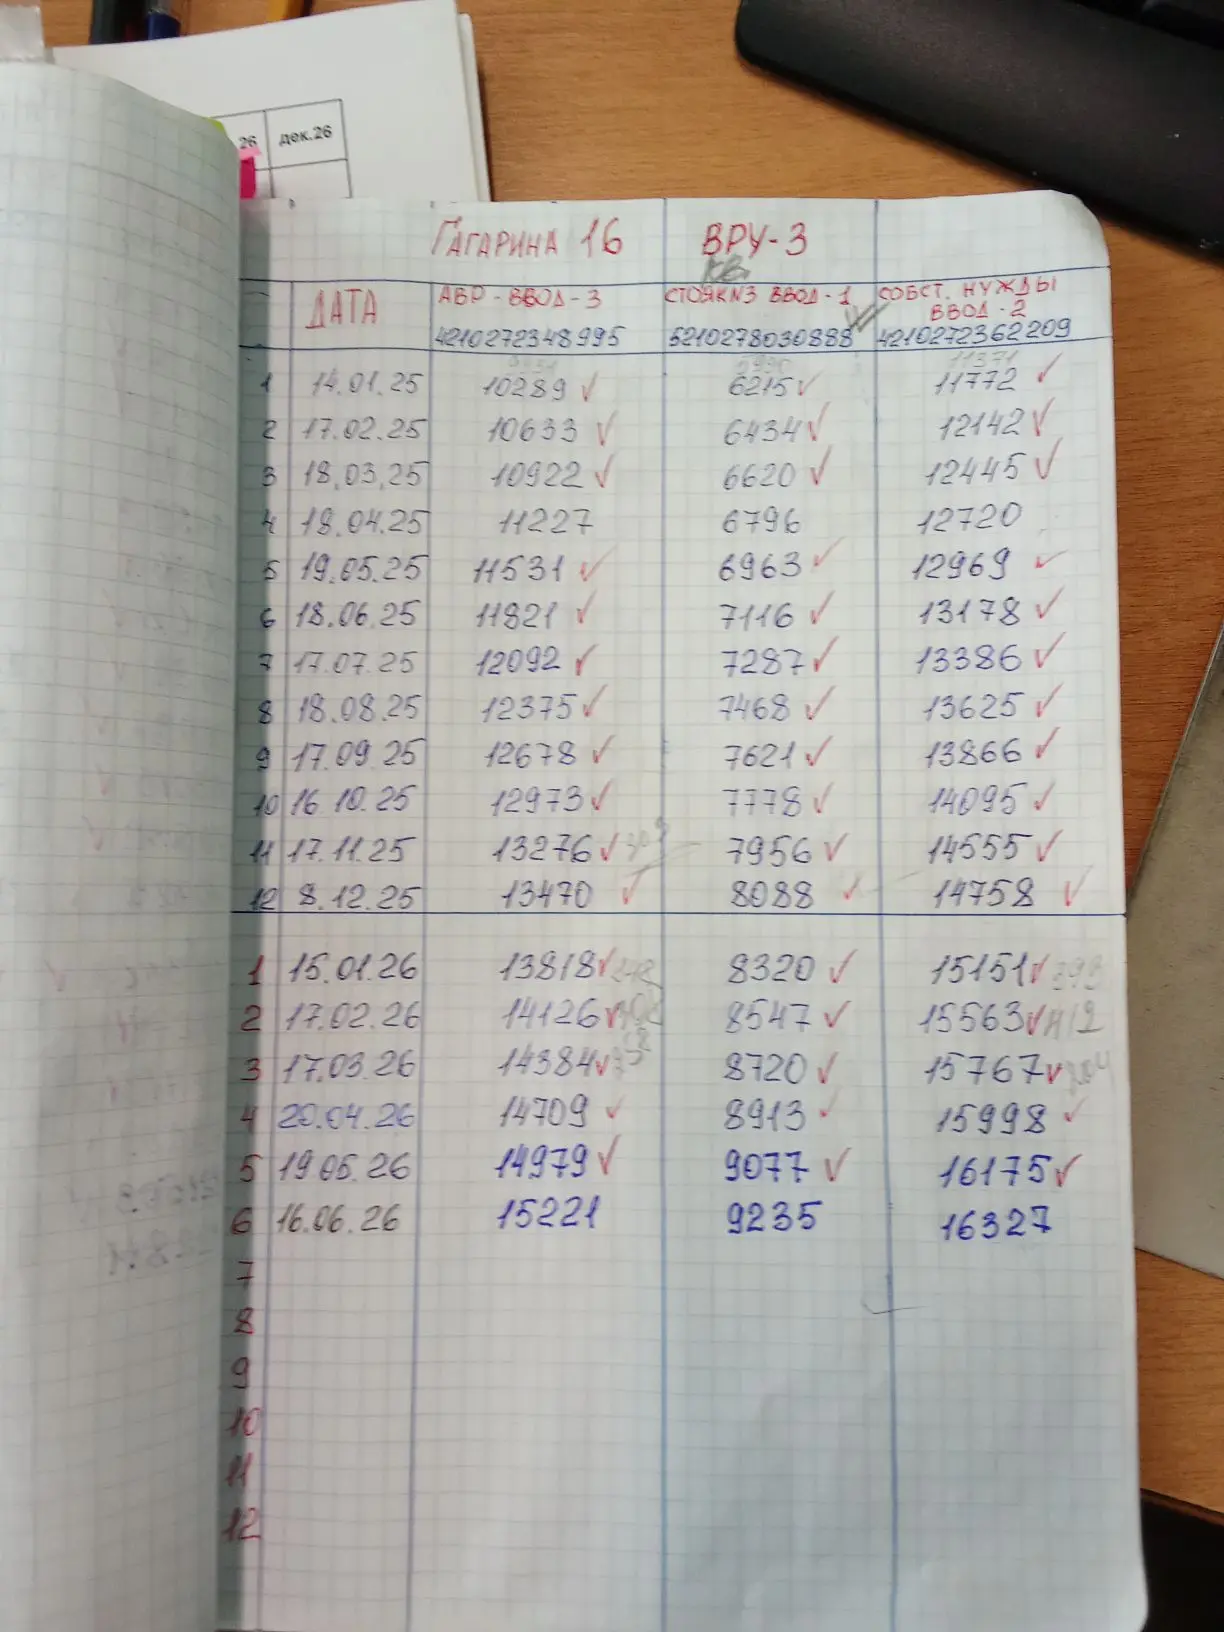 26 дек.26
ГАГАРИНА 16 ВРУ-3
кв.
ДАТА АВР-ВВОД-3 СТОЯК№3 ВВОД-1 СОБСТ. НУЖДЫ ВВОД-2
4210272348995 5210278030888 4210272362209
11371
1 14.01.25 10289 ✓ 6215 ✓ 11772 ✓
2 17.02.25 10633 ✓ 6434 ✓ 12142 ✓
3 18.03.25 10922 ✓ 6620 ✓ 12445 ✓
4 18.04.25 11227 6796 12720
5 19.05.25 11531 ✓ 6963 ✓ 12969 ✓
6 18.06.25 11821 ✓ 7116 ✓ 13178 ✓
7 17.07.25 12092 ✓ 7287 ✓ 13386 ✓
8 18.08.25 12375 ✓ 7468 ✓ 13625 ✓
9 17.09.25 12678 ✓ 7621 ✓ 13866 ✓
10 16.10.25 12973 ✓ 7778 ✓ 14095 ✓
11 17.11.25 13276 ✓ 7956 ✓ 14555 ✓
12 8.12.25 13470 ✓ 8088 ✓ 14758 ✓
1 15.01.26 13818 ✓ 8320 ✓ 15151 ✓ 393
2 17.02.26 14126 ✓ 8547 ✓ 15563 ✓ 412
3 17.03.26 14384 ✓ 8720 ✓ 15767 ✓ 204
4 20.04.26 14709 ✓ 8913 ✓ 15998 ✓
5 19.05.26 14979 ✓ 9077 ✓ 16175 ✓
6 16.06.26 15221 9235 16327
7
8
9
10
11
12